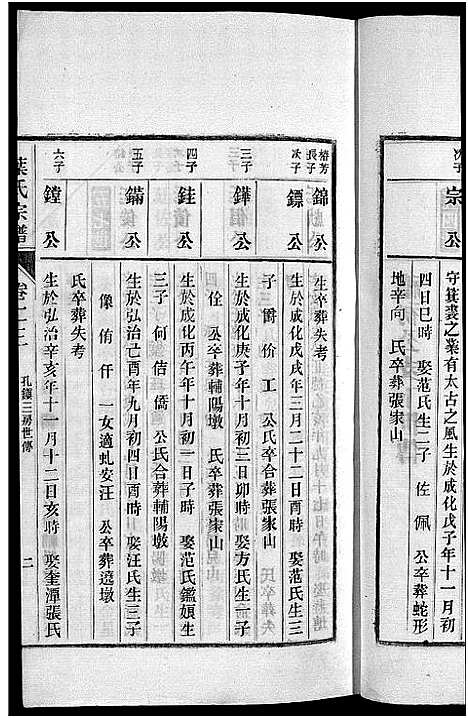 次子
宗公
守箕裘之業有太古之風生於成化戊子年十一月初
四日巳時 娶范氏生二子 佐 佩 公卒葬蛇形
地辛向 氏卒葬張家山
椿芳長子
錦公
生卒葬失考
次子
鏢公
生於成化戊戌年三月二十二日酉時 娶范氏生三
子 爵 价 工 公氏卒合葬張家山
三子
鏵公
生於成化庚子年十月初三日卯時 娶方氏生一子
佺 公卒葬輔陽墩 氏卒葬張家山
四子
銈公
生於成化丙午年十月初一日子時 娶范氏鑑娘生
三子 何 佶 僑 公氏合葬輔陽墩
五子
鏋公
生於弘治己酉年九月初四日酉時 娶汪氏生三子
像 侑 仟 一女適虬安汪 公卒葬邉墩
氏卒葬失考
六子
鏜公
生於弘治辛亥年十一月十二日亥時 娶奎潭張氏
葉氏宗譜
卷十三
孔鎮三房世傳
二